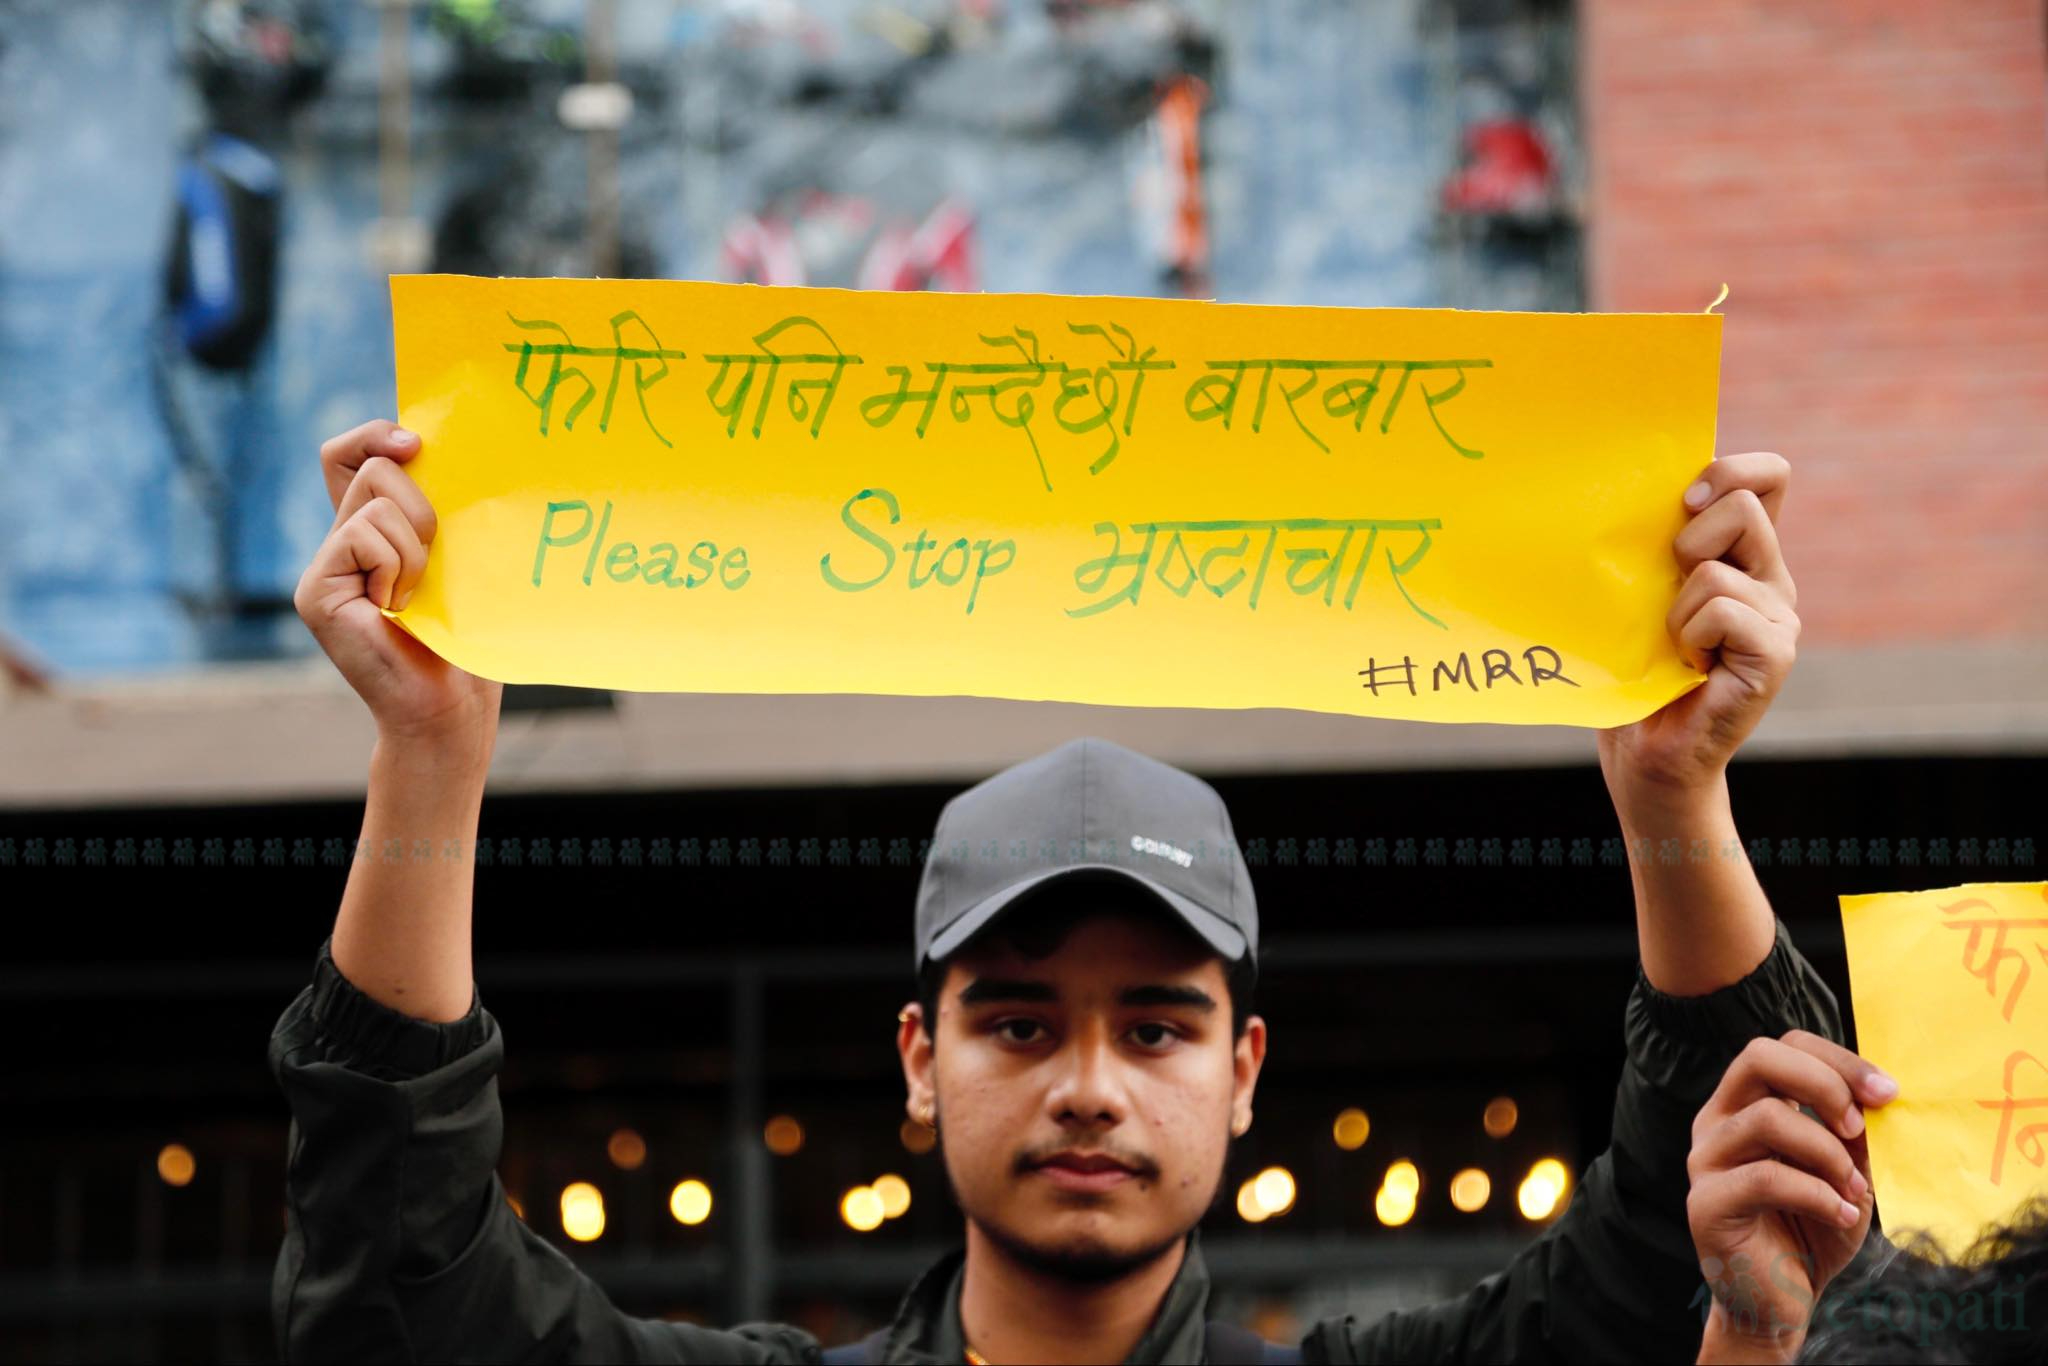 फेरि पनि भन्दैछौं बारबार
Please Stop भ्रष्टाचार
#MRR
Setopati